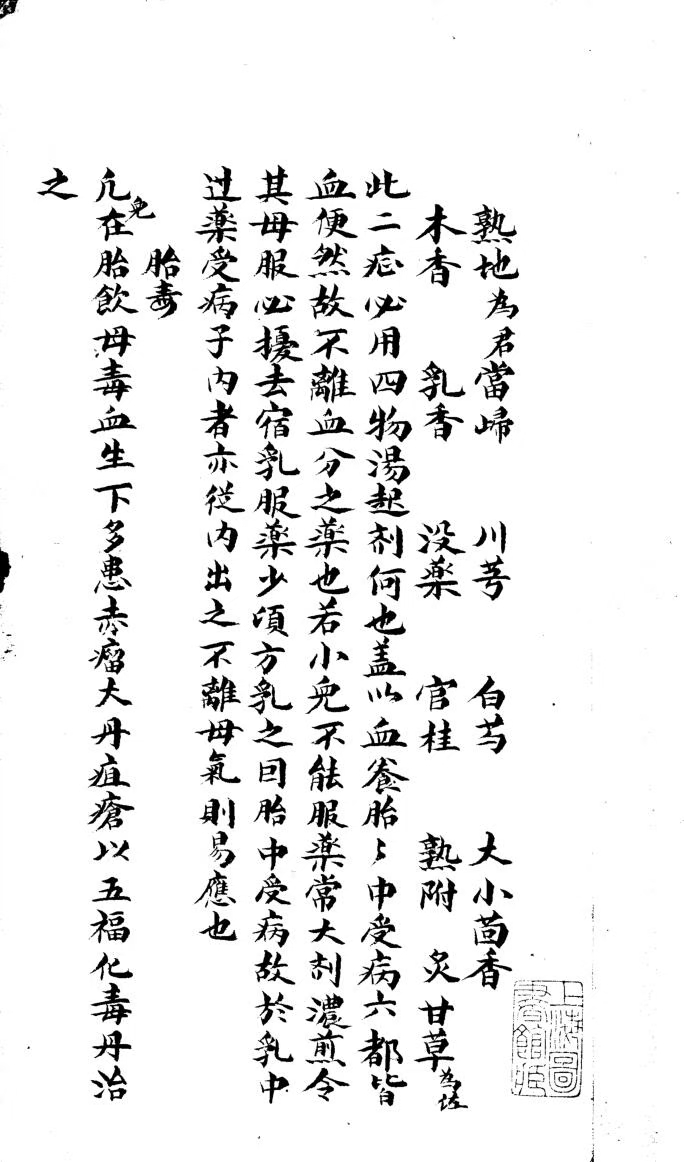 熟地為君當歸 川芎 白芍 大小茴香
木香 乳香 没藥 官桂 熟附 炙甘草為佐
此二症必用四物湯起剂何也盖以血養胎〻中受病六都皆
血便然故不離血分之藥也若小児不能服藥常大剂濃煎令
其母服必擾去宿乳服藥少頃方乳之囙胎中受病故於乳中
过藥受病子内者亦從内出之不離母氣則易應也
胎毒
凢児在胎飲母毒血生下多患赤瘤大丹疽瘡以五福化毒丹治
之
上海圖書館藏